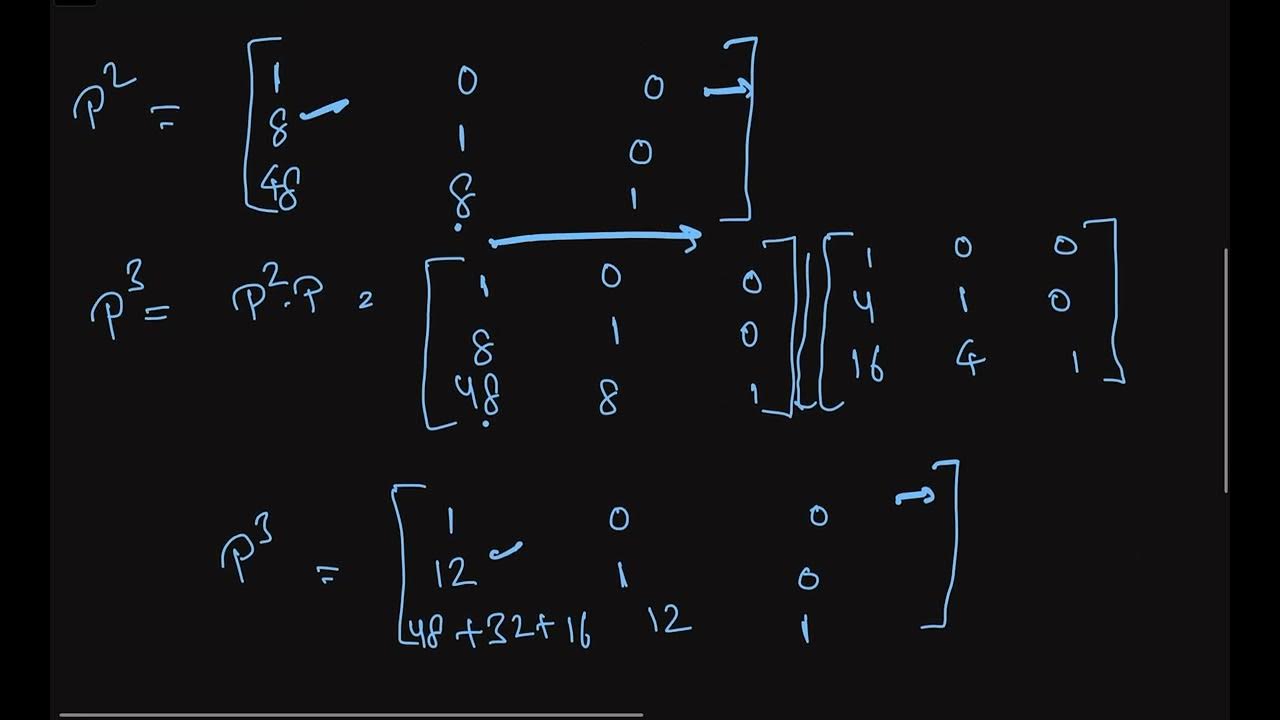 P² = [ 1 0 0
8 1 0
48 8 1 ]
P³ = P².P = [ 1 0 0 ] [ 1 0 0 ]
[ 8 1 0 ] [ 4 1 0 ]
[ 48 8 1 ] [ 16 4 1 ]
P³ = [ 1 0 0
12 1 0
48+32+16 12 1 ]